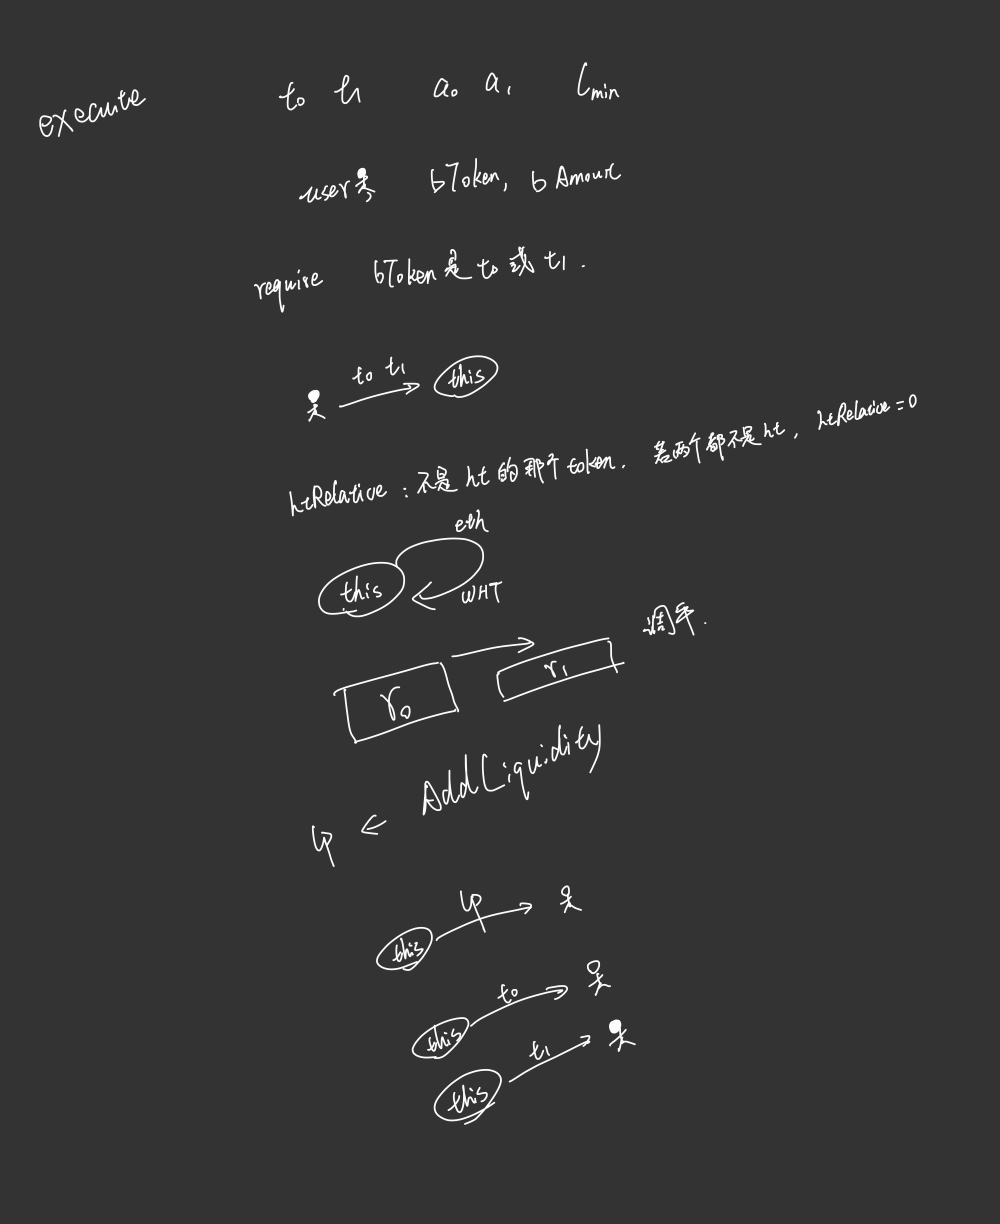 execute t₀ t₁ a₀ a₁ Lmin
user bToken, bAmount
require bToken是 t₀ 或 t₁.
t₀ t₁
this
htRelative : 不是 ht 的那个 token. 若两个都不是 ht, htRelative = 0
eth
this
WHT
r₀ r₁ 调平.
AddLiquidity
lp ←
lp
this
t₀
this
t₁
this